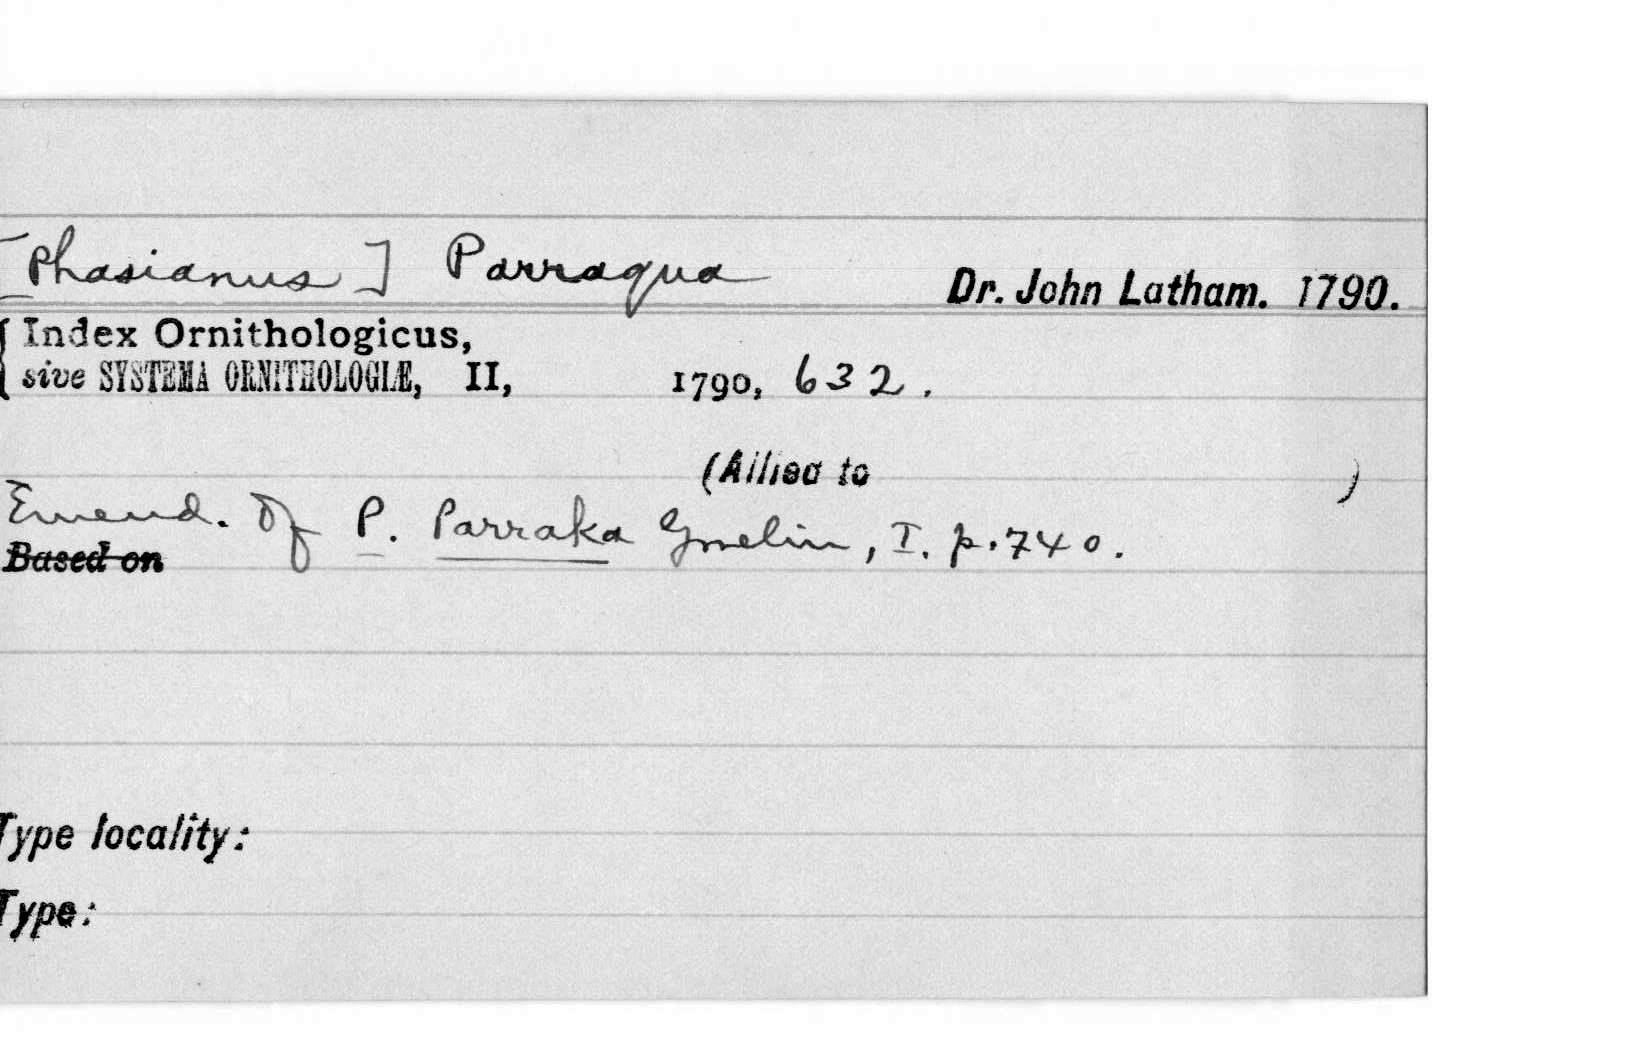 [Phasianus] Parraqua Dr. John Latham. 1790.
{ Index Ornithologicus,
sive SYSTEMA ORNITHOLOGIÆ, II, 1790, 632.
(Allied to )
Emend. of P. Parraka Gmelin, I. p. 740.
Based on
Type locality:
Type: